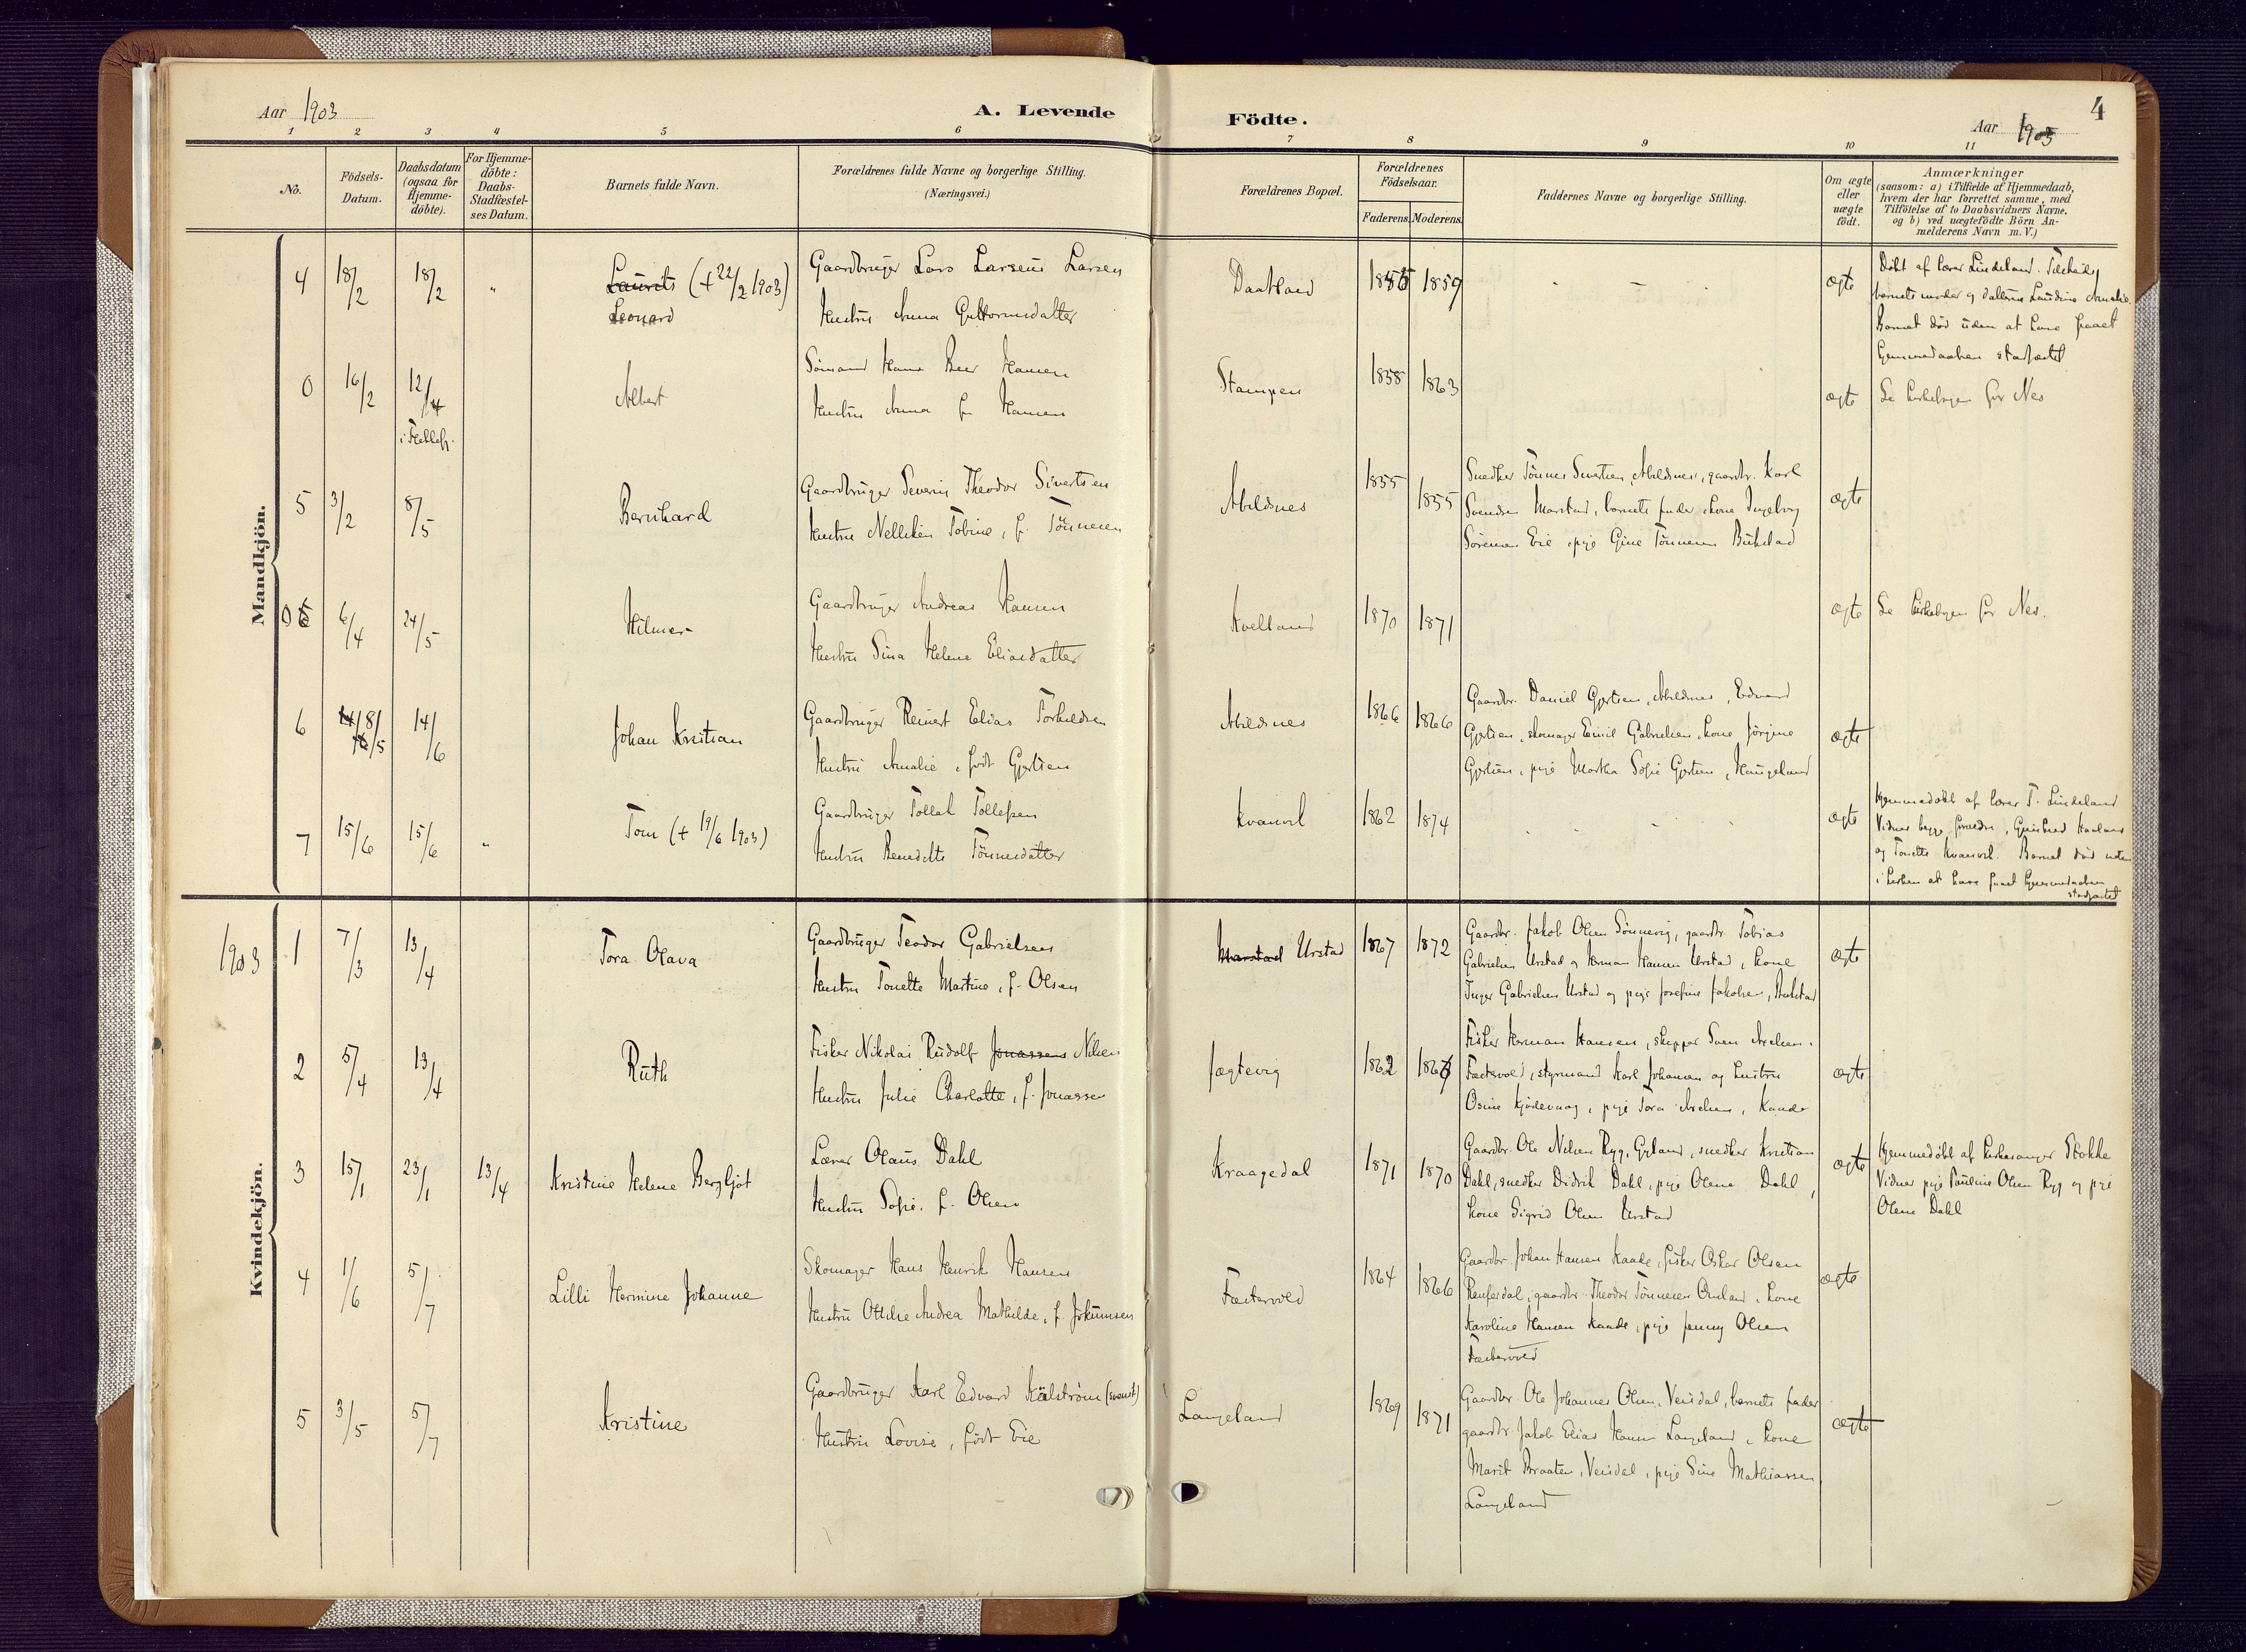 Aar 1903
A. Levende
Födte.
Aar 1903
4
1 2 3 4 5 6 7 8 9 10 11
No.
Födsels-
Datum.
Daabsdatum
(ogsaa for
Hjemme-
döbte).
For Hjemme-
döbte:
Daabs-
Stadfæstel-
ses Datum.
Barnets fulde Navn.
Forældrenes fulde Navne og borgerlige Stilling.
(Næringsvei.)
Forældrenes Bopæl.
Forældrenes
Födselsaar.
Faderens. Moderens.
Faddernes Navne og borgerlige Stilling.
Om ægte
eller
uægte
født.
Anmærkninger
(saasom: a) i Tilfælde af Hjemmedaab,
hvem der har forrettet samme, med
Tilföielse af to Daabsvidners Navne,
og b) ved uægtefödte Börn An-
melderens Navn m. V.)
Mandkjön.
4 18/2 18/2 " Laurits (+ 22/2 1903)
Leonard
Gaardbruger Lars Larsen
Hustru Anna Guttormsdatter
Daatland 1859 ægte
Døbt af lærer Lindeland.
barnets moder og datteren Laudine Amalie.
Barnet død uden at have faaet
hjemmedaaben stadfæstet
0 16/2 12/4
Albert
Sømand Hans Hansen
Hustru Anna f. Hansen
Stampen 1838 1863 ægte Se kirkebogen for Nes
5 3/2 8/5 Bernhard
Gaardbruger Severin Theodor Sivertsen
Hustru Nelliken Tobine, f. Tønnesen
Abildsnes 1855 1855
Snedker Tønnes Sivertsen, Abildsnes, gaardbr. Karl
Svendsen Marstad, barnets fader, kone Ingeborg
Sørensen Eie, pige Gine Tønnesen Bukstad
ægte
0 6/4 24/5 Hilmer
Gaardbruger Andreas Hansen
Hustru Sina Helene Eliasdatter
Kvelland 1870 1871 ægte Se kirkebogen for Nes.
6 8/5 14/6 Johan Kristian
Gaardbruger Reinert Elias Torkildsen
Hustru Amalie, født Gjertsen
Abildsnes 1866 1866
Gaardbr. Daniel Gjertsen, Abildsnes, Edvard
Gjertsen, skomager Emil Gabrielsen, kone Jörgine
Gjertsen, pige Martha Sofie Gjertsen, Haugeland
ægte
7 15/6 15/6 " Tom (+ 19/6 1903)
Gaardbruger Tollak Tollefsen
Hustru Benedikte Tønnesdatter
Kvanvik 1862 1874 ægte
Hjemmedøbt af lærer T. Lindeland
Vidner begge forældre,
og Tonette Kvanvik. Barnet død uden
at have faaet hjemmedaaben
stadfæstet
1903
Kvindekjön.
1 7/3 13/4 Tora Olava
Gaardbruger Teodor Gabrielsen
Hustru Tonette Martine, f. Olsen
Marstad Urstad 1867 1872
Gaardbr. Jakob Olsen Sønnevig, gaardbr. Tobias
Gabrielsen Urstad og Herman Hansen Urstad, kone
Inger Gabrielsen Urstad og pige Josefine Jakobsen, Bukstad
ægte
2 5/4 13/4 Ruth
Fisker Nikolai Rudolf Jonassen Nilsen
Hustru Julie Charlotte, f. Jonassen
Jægtevig 1862
Fisker Herman Hansen, skipper Sven Axelsen
Fædervold, styrmand Karl Johansen og hustru
Osine Kjödevaag, pige Tora Axelsen, Kaade
ægte
3 15/1 23/1 13/4 Kristine Helene Bergljot
Lærer Olaus Dahl
Hustru Sofie, f. Olsen
Kraagedal 1871 1870
Gaardbr. Ole Nilsen Ryg, Gyland, snedker Kristian
Dahl, snedker Didrik Dahl, pige Olena Dahl,
kone Sigrid Olsen Urstad
ægte
Hjemmedøbt af kirkesanger Stokke
Vidner pige Pauline Olsen Ryg og pige
Olena Dahl
4 1/6 5/7 Lilli Hermine Johanne
Skomager Hans Henrik Hansen
Hustru Ottilie Andrea Mathilde, f. Jokumsen
Fædervold 1864 1866
Gaardbr. Johan Hansen Kaade, fisker Oskar Olsen
Refsdal, gaardbr. Theodor Tönnesen Omland, kone
Karoline Hansen Kaade, pige Jenny Olsen
Fædervold
ægte
5 3/5 5/7 Kristine
Gaardbruger Karl Edvard Kälström (svensk)
Hustru Lovise, født Eie
Langeland 1869 1871
Gaardbr. Ole Johannes Olsen, Versdal, barnets fader
gaardbr. Jakob Elias Hansen Langeland, kone
Marit Braaten, Versdal, pige Sina Mathiassen
Langeland
ægte